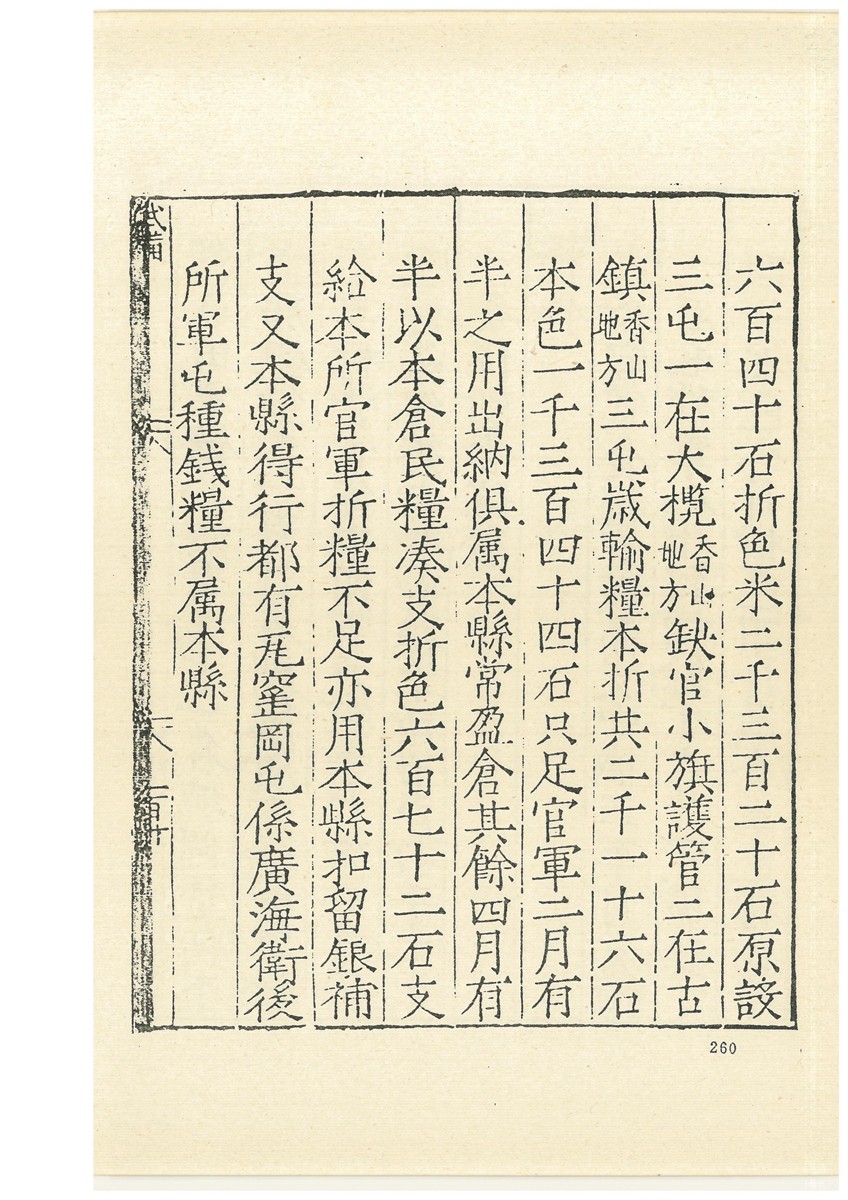 六百四十石折色米二千三百二十石原設
三屯一在大欖香山地方缺官小旗護管二在古
鎮香山地方三屯歲輸糧本折共二千一十六石
本色一千三百四十四石只足官軍二月有
半之用出納俱属本縣常盈倉其餘四月有
半以本倉民糧凑支折色六百七十二石支
給本所官軍折糧不足亦用本縣扣留銀補
支又本縣得行都有瓦窰岡屯係廣海衛後
所軍屯種錢糧不属本縣
武備
260